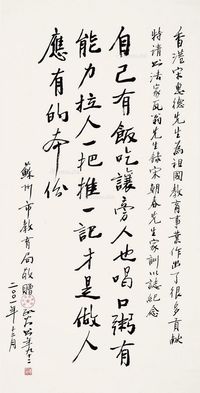 香港宋惠德先生為祖國教育事業作出了很多貢獻
特請书法家瓦翁先生錄宋朝春先生家訓以誌紀念
自己有飯吃讓旁人也喝口粥有
能力拉人一把推一記才是做人
應有的本份
蘇州市教育局敬贈
二〇〇一年十二月